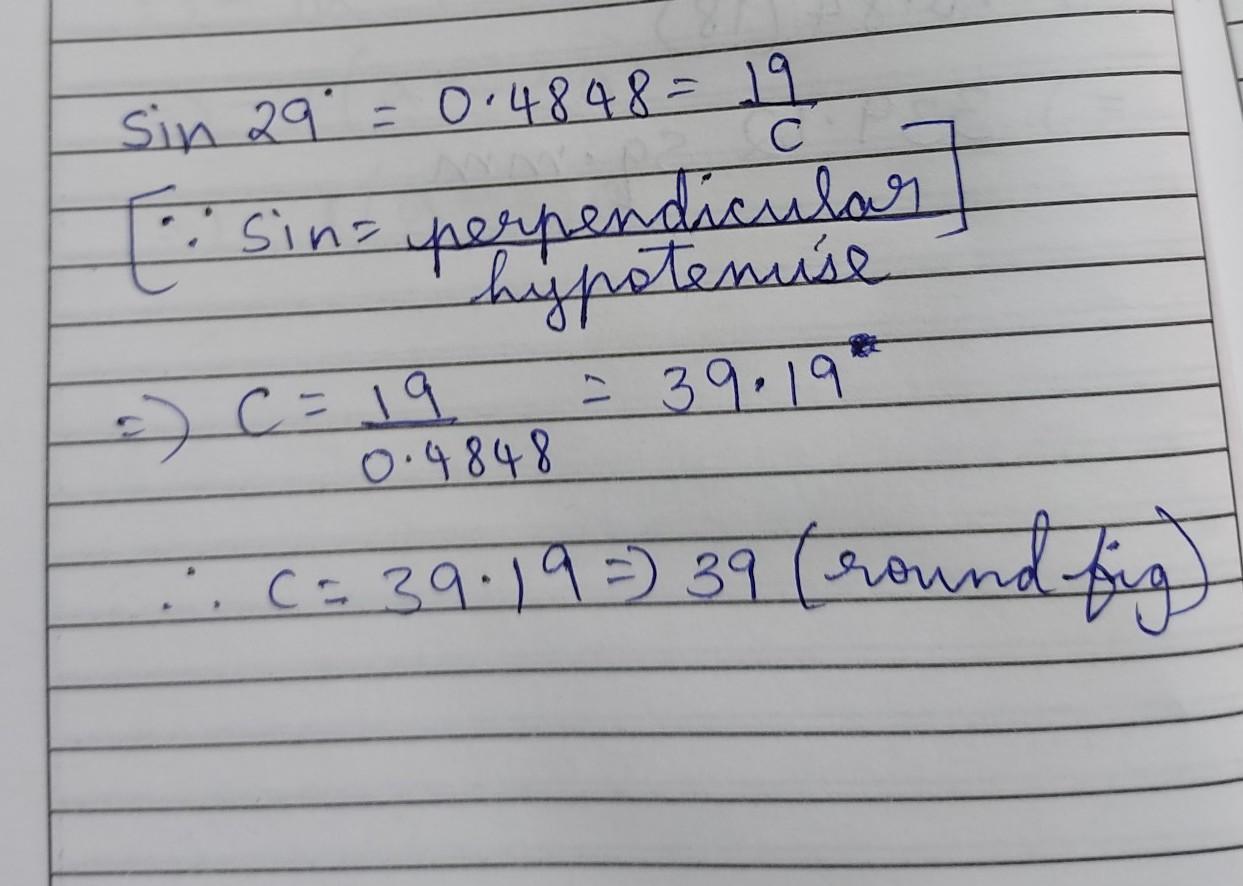 Sin 29° = 0.4848 = 19/C
[∵ Sin = perpendicular/hypotenuse]
=> C = 19/0.4848 = 39.19
∴ C = 39.19 => 39 (round fig)